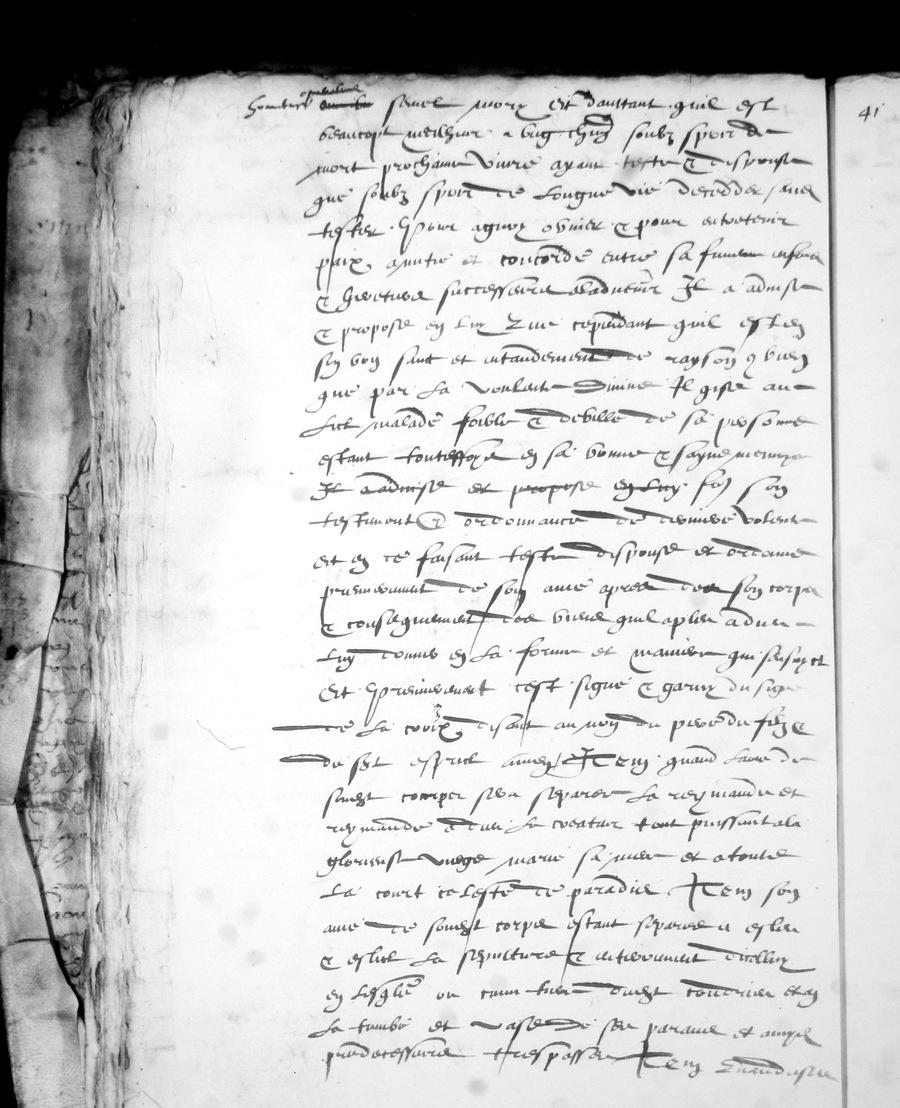 seul mory Et dauttant quil est
41
beaucopt meilheur a ung chun soubz spoir de
mort prochaine vivre ayant teste & dispouse
que soubz spoir de longue vie deceder sans
tester Pour aquoy obvier & pour entretenir
paix amitie et concorde entre sa femme enfans
& heretiers successeurs aladvenir Il a advise
& propose en luy que cependant quil est en
son bon sanc et entandement de rayson & bien
que par la voulonte divine Il gise au
lict malade foible & deville de sa personne
estant touteffoys en sa bonne & sayne memoyre
Il a advise et propose en luy son
testement & ordonnance de derniere volente
et en ce faisant teste dispouse et ordonne
premierement de son ame apres de son corps
& conseguement des biens quil a pleu a dieu
luy donner en la forme et maniere qui sensuyt
Et Premierement cest signe & garny du signe
de la croix disant au nom du pere du filz &
du sct esprit amen Item quand lame de
sondt corps sera separee la reymande et
reymande a dieu le createur tout puissant ala
glorieuse vierge marie sa mere et a toute
la court celeste de paradis Item son
ame de sondt corps estant separee a esleu
& eslit la sepulture & enterrement dicelluy
en lesglise ou cimetiere dudt et en
la tumbe et vase de ses parans et amys
predecesseurs trespasses Item